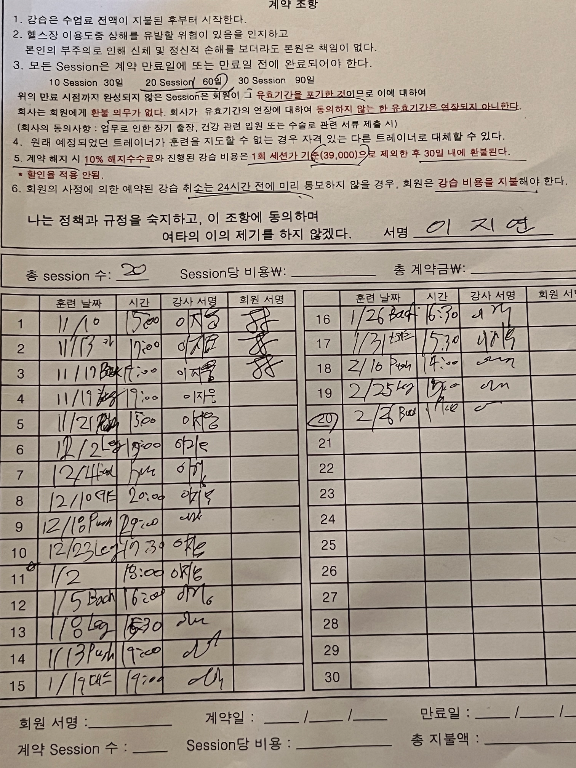 계약 조항
1. 강습은 수업료 전액이 지불된 후부터 시작한다.
2. 헬스장 이용도중 상해를 유발할 위험이 있음을 인지하고
본인의 부주의로 인해 신체 및 정신적 손해를 보더라도 본원은 책임이 없다.
3. 모든 Session은 계약 만료일에 또는 만료일 전에 완료되어야 한다.
10 Session 30일 20 Session / 60일 30 Session 90일
위의 만료 시점까지 완성되지 않은 Session은 회원이 그 유효기간을 포기한 것이므로 이에 대하여
회사는 회원에게 환불 의무가 없다. 회사가 유효기간의 연장에 대하여 동의하지 않는 한 유효기간은 연장되지 아니한다.
(회사의 동의사항 : 업무로 인한 장기 출장, 건강 관련 입원 또는 수술로 관련 서류 제출 시)
4. 원래 예정되었던 트레이너가 훈련을 지도할 수 없는 경우 자격 있는 다른 트레이너로 대체할 수 있다.
5. 계약 해지 시 10% 해지수수료와 진행된 강습 비용은 1회 세션가 기준(39,000)으로 제외한 후 30일 내에 환불된다.
* 할인율 적용 안됨.
6. 회원의 사정에 의한 예약된 강습 취소는 24시간 전에 미리 통보하지 않을 경우, 회원은 강습 비용을 지불해야 한다.
나는 정책과 규정을 숙지하고, 이 조항에 동의하며
여타의 이의 제기를 하지 않겠다. 서명 이지연
총 session 수: 20 Session당 비용₩: 총 계약금₩:
훈련 날짜 시간 강사 서명 회원 서명
1 11/10 15:00
2 11/13 17:00
3 11/17 Back
4 11/19 19:00 이자웅
5 11/21 15:00
6 12/2 Leg
7 12/4
8 12/10 20:00
9 12/18 Push
10 12/23 Leg 17:30
11 1/2 18:00
12 1/5 Back 16:00
13 1/8 Leg
14 1/13 Push 19:00
15 1/19 19:00
훈련 날짜 시간 강사 서명 회원 서
16 1/26 Back 16:30
17 1/31 15:30
18 2/16 Push
19 2/25 Leg
20
21
22
23
24
25
26
27
28
29
30
회원 서명 : 계약일 : / / 만료일 : / /
계약 Session 수 : Session당 비용 : 총 지불액 :